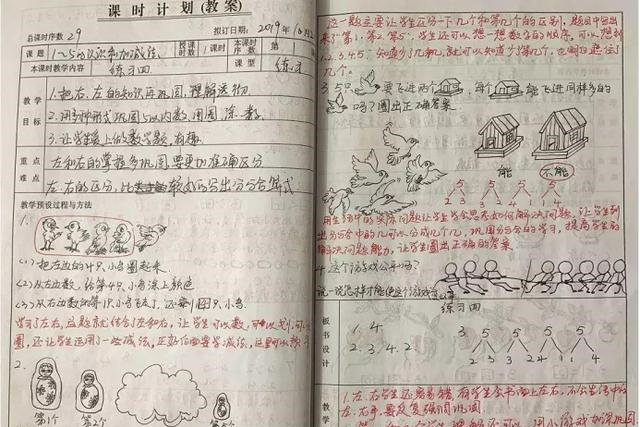 课时计划(教案)
总课时序数 29
拟订日期: 2019年10月
课题 1~5的认识和加减法
授课时数 1课时
本课时序数
本课时教学内容 练习四
课型 练习
教学目标
1.把右、左的知识再巩固,理解透彻
2.用多种形式巩固5以内数,用圈、涂、数
3.让学生爱上做数学题,有趣
重点难点
左和右的掌握多巩固,要更加准确区分
左、右的区分,比较
教学预设过程与方法
1.
(1)把左边的4只小鸟圈起来
(2)从左边数,给第4只小鸟涂上颜色
(3)从右边数的第1只小鸟飞走了,还剩 只小鸟
学习了左右,这题就结合了左和右,让学生可以数,可以划,可以
圈,还让学生运用了一些减法,正好后面要学减法,这里可以
2.
第1个 第2个 第5个
这一题主要让学生区分一下几个和第几个的区别,题目中给出
来了第1、第2、第5,学生还可以想一想数字的顺序,可以想到
1.2.3.4.5 知道少了几和几,就可以知道少了第几个,也明白遮住了
几个。
3. 5只 要飞进两个 ,每个 能飞进同样多的
吗?圈出正确答案
能 不能
5 5 5 5
1 4 2 3 3 2 4 1
用生活中的实际问题让学生学会思考如何解决问题,让学生到
分分合中的几可以分成几个几,巩固分与合的学习,提高学生的
解决问题能力,让学生圈出正确的答案
4. 这个游戏公平吗?
说一说怎样才能使这个游戏公平
练习四
板书设计
1. 4
2. 3. 4. 2
3 5 5 5 5
1 4 2 3 3 2 4 1 1 4
教学
1.左、右学生还容易错,有学生会书面上左右,不会生活中的
左、右手,要反复强调巩固